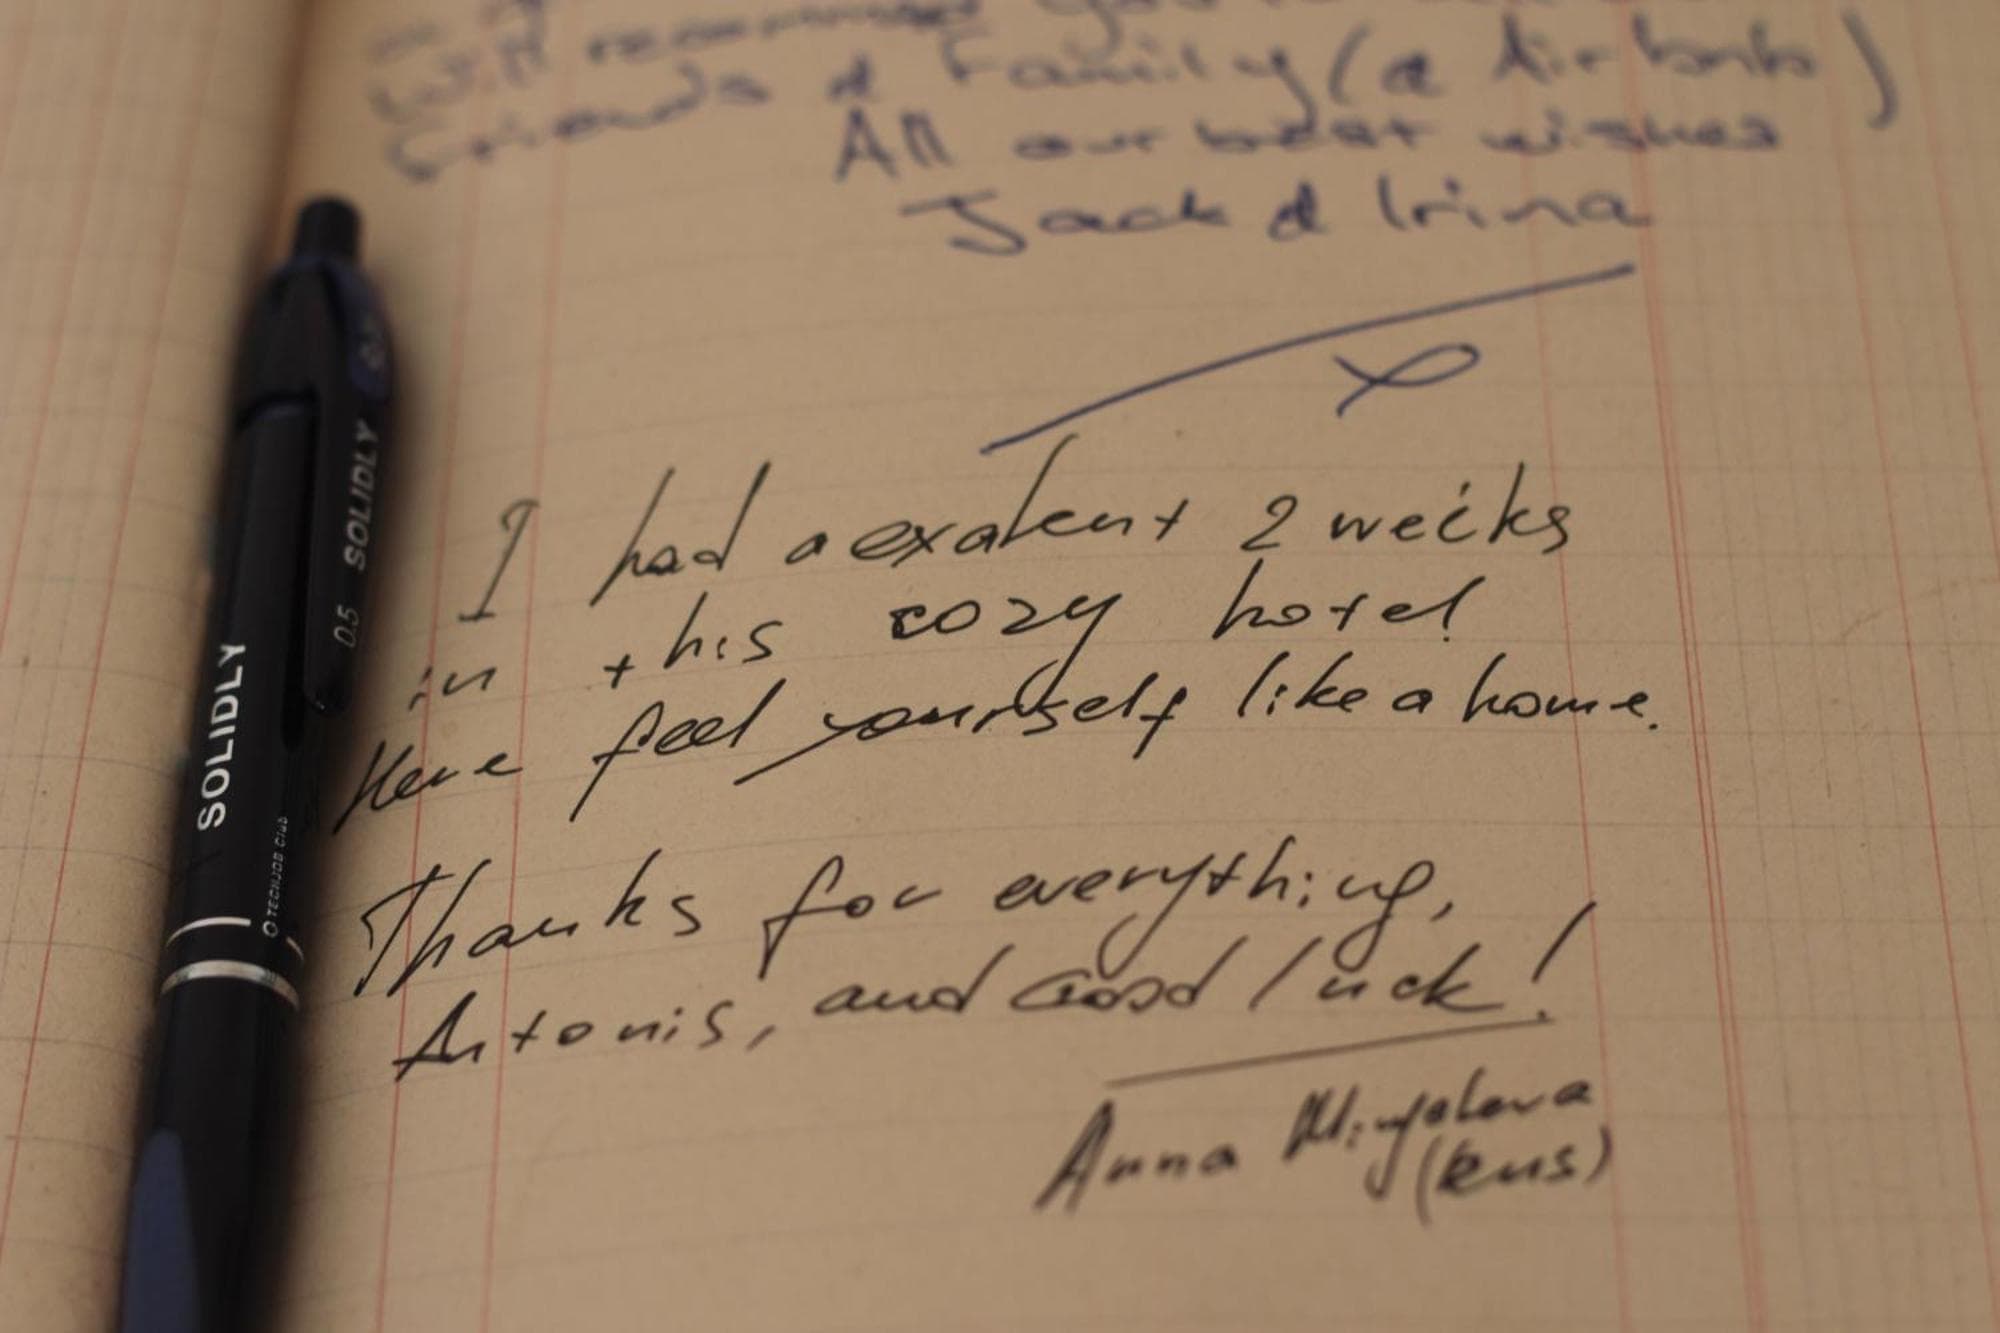 Will recommend
friends & Family (& Airbnb)
All our best wishes
Jack & Irina
I had a exalent 2 weeks
in this cozy hotel
Here feel yourself like a home.
Thanks for everything,
Antonis, and Good luck!
Anna
(RUS)
SOLIDLY
0.5 SOLIDLY